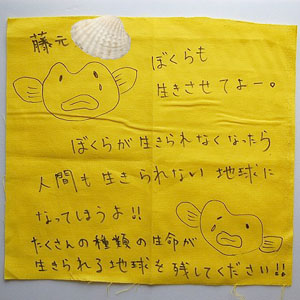 藤元
ぼくらも
生きさせてよー。
ぼくらが生きられなくなったら
人間も生きられない地球に
なってしまうよ!!
たくさんの種類の生命が
生きられる地球を残してください!!